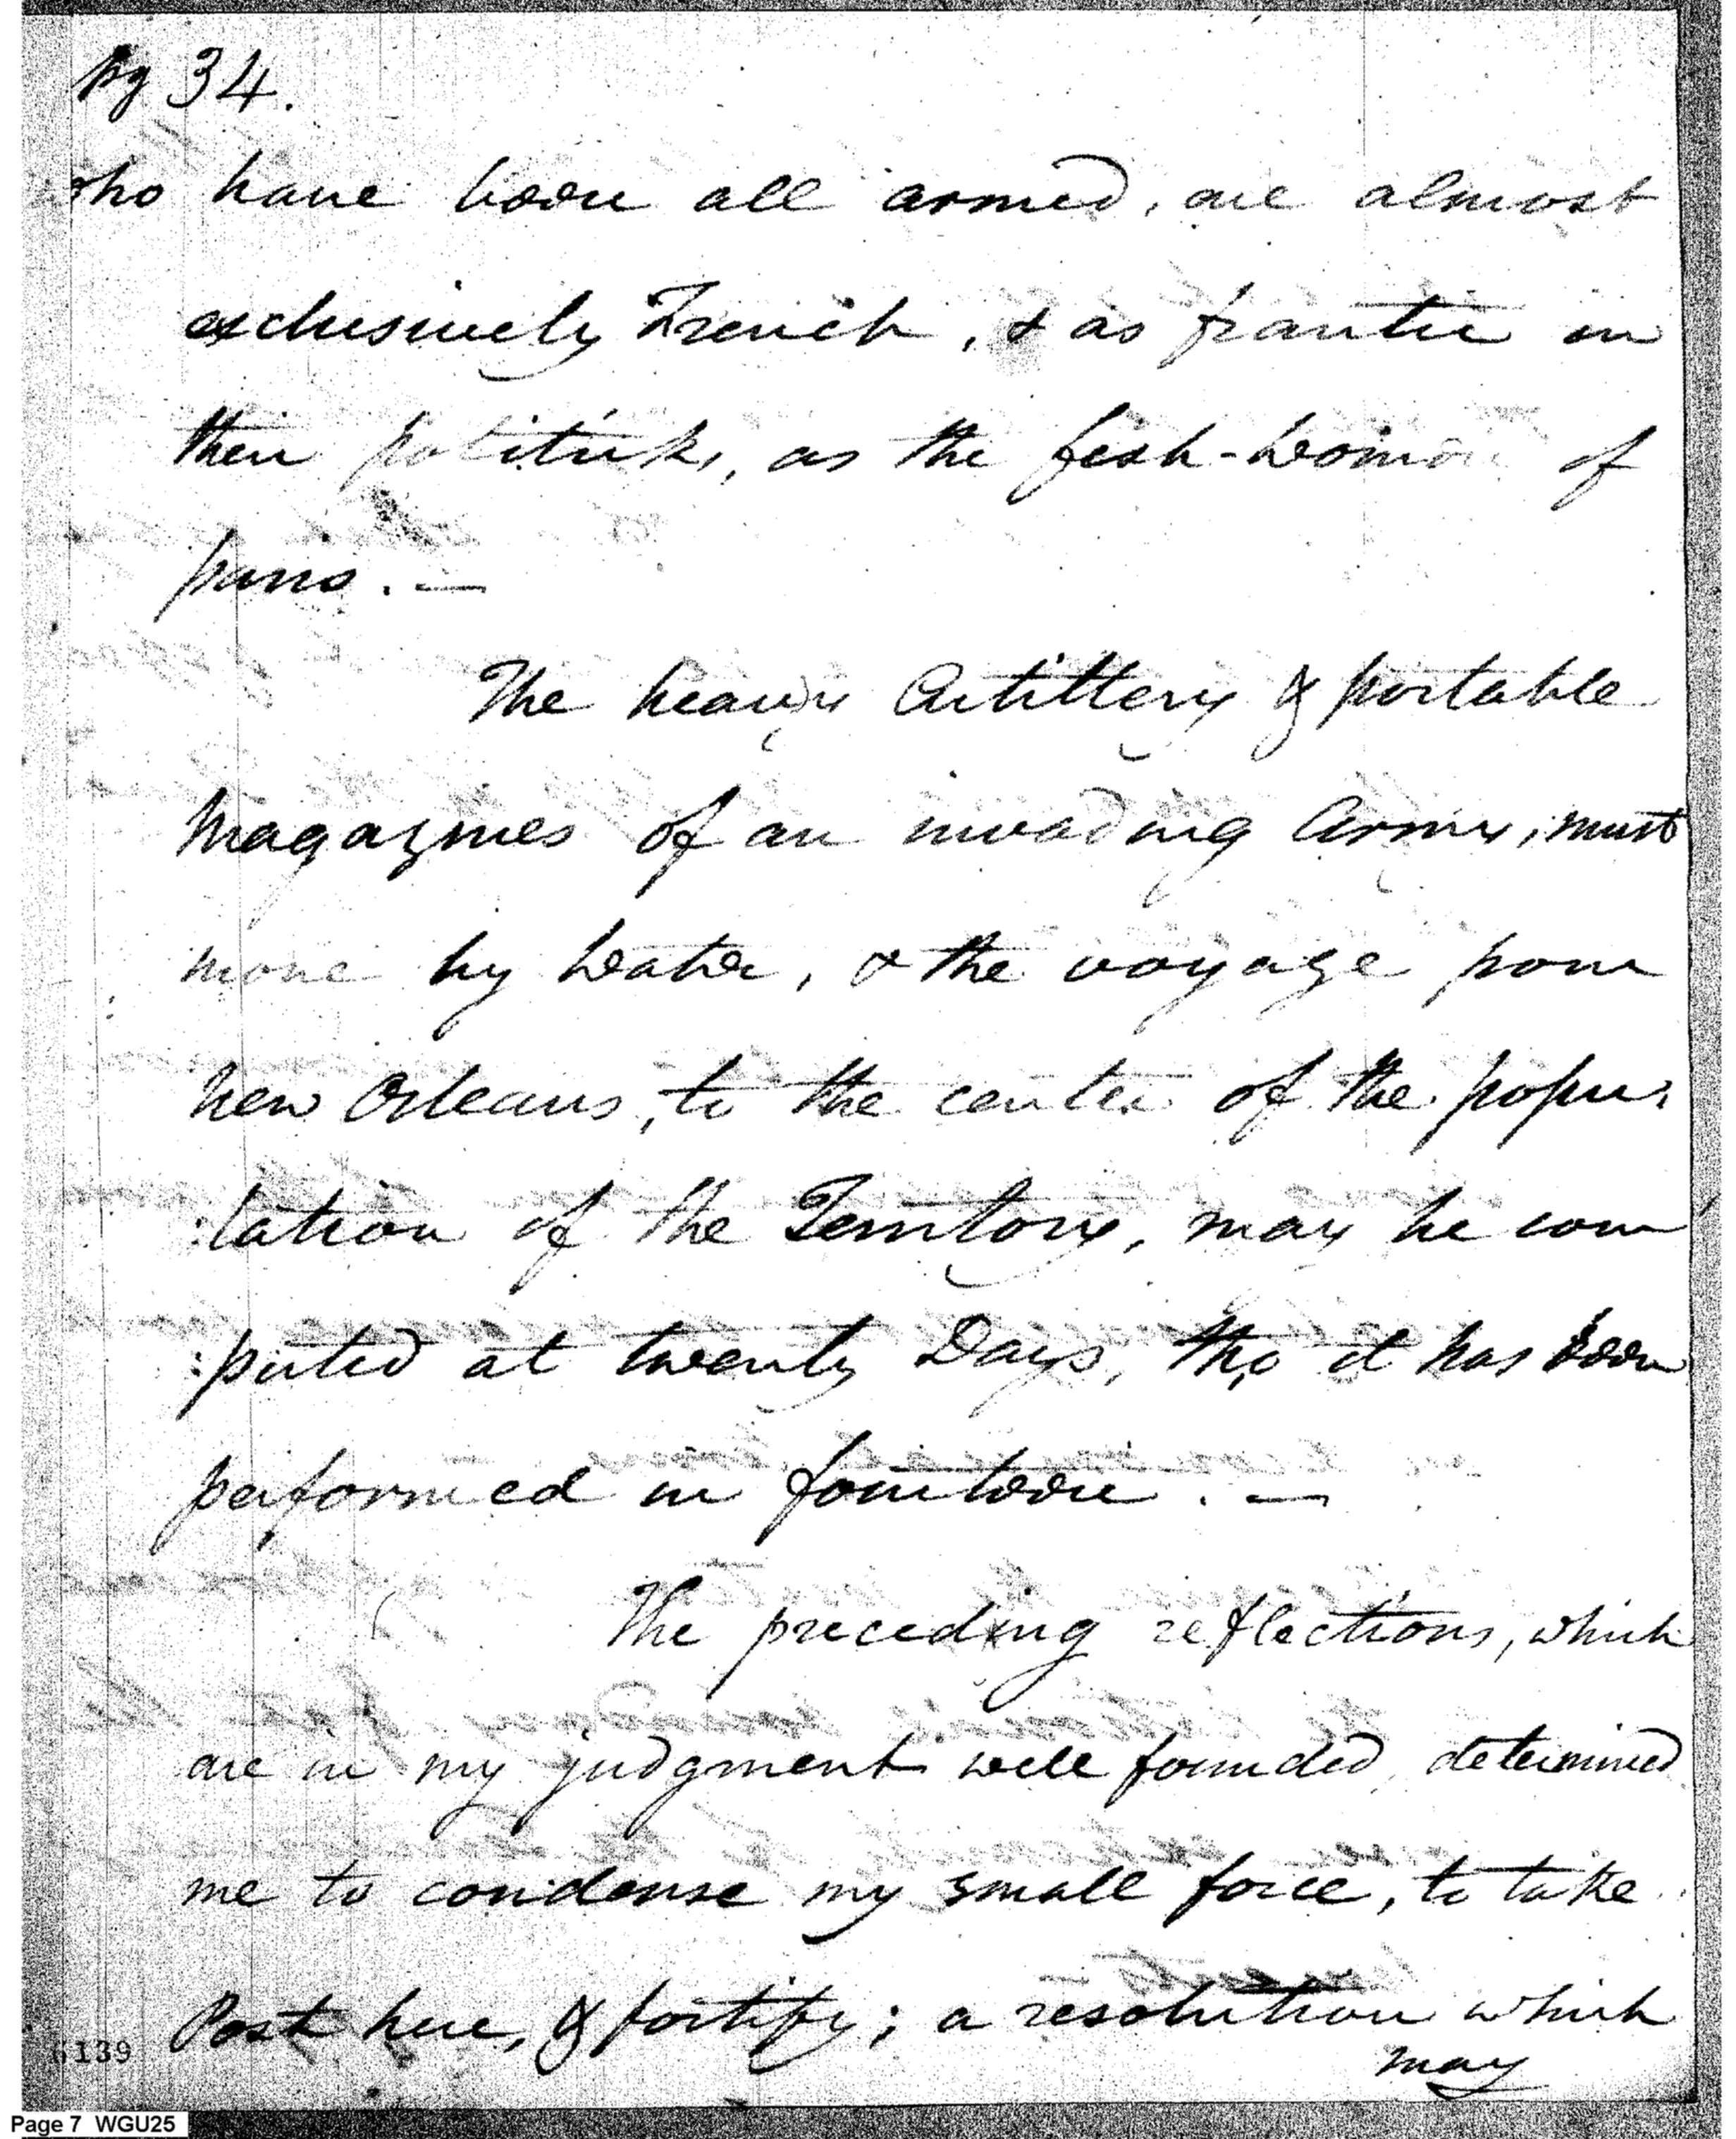 Pg 34.
who have been all armed, are almost
exclusively French, & as frantic in
their politicks, as the fish-women of
paris. —
The heavy Artillery & portable
Magazines of an invading Army, must
move by Water, & the voyage from
New Orleans, to the center of the popu:
:lation of the Territory, may be com
:puted at twenty Days, tho it has been
performed in fourteen. —
The preceding reflections, which
are in my judgment well founded, determined
me to condense my small force, to take
Post here, & fortify; a resolution which
may
6139
Page 7 WGU25